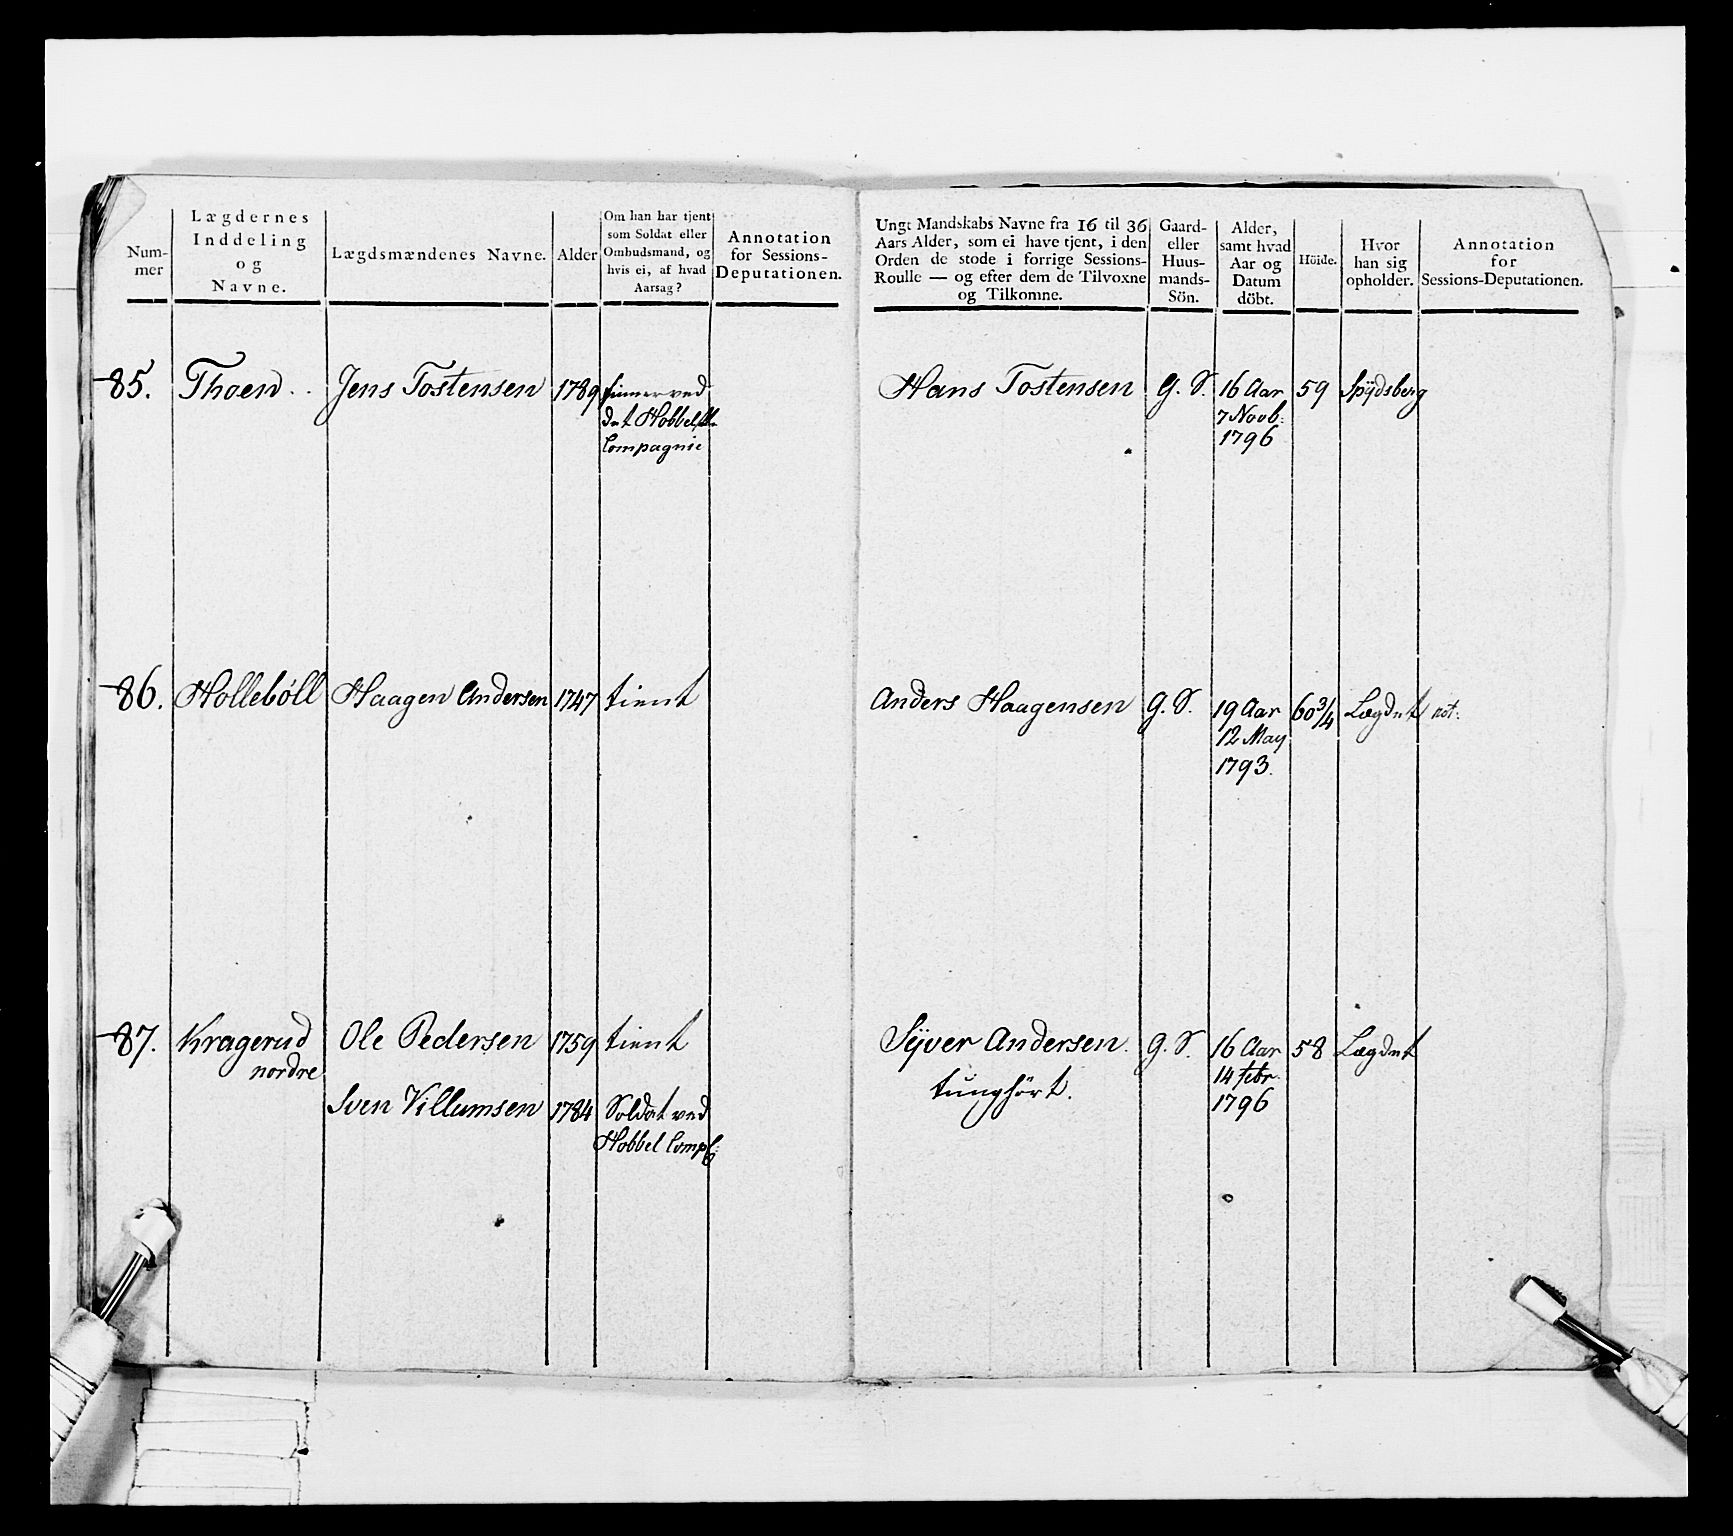 Num-
mer
Lægdernes
Inddeling
og
Navne.
Lægdsmændenes Navne.
Alder
Om han har tjent
som Soldat eller
Ombudsmand, og
hvis ei, af hvad
Aarsag?
Annotation
for Sessions-
Deputationen.
Ungt Mandskabs Navne fra 16 til 36
Aars Alder, som ei have tjent, i den
Orden de stode i forrige Sessions-
Roulle — og efter dem de Tilvoxne
og Tilkomne.
Gaard-
eller
Huus-
mands-
Sön.
Alder,
samt hvad
Aar og
Datum
döbt.
Höide.
Hvor
han sig
opholder.
Annotation
for
Sessions-Deputationen.
85. Thoen . . Jens Tostensen 1789 tienner ved
det Hobbelske
Compagnie
Hans Tostensen G. S. 16 Aar 59 Spydsberg
7 Novb:
1796
86. Hollebøll Haagen Andersen 1747 tient
Anders Haagensen G. S. 19 Aar 60 3/4 Lægdet not:
12 May
1793.
87. Kragerud Ole Pedersen 1759 tient
nordre
Sven Villumsen 1784 Soldat ved
Hobbel Comp:
Syver Andersen. G. S. 16 Aar 58 Lægdet
tunghørt. 14 febr.
1796